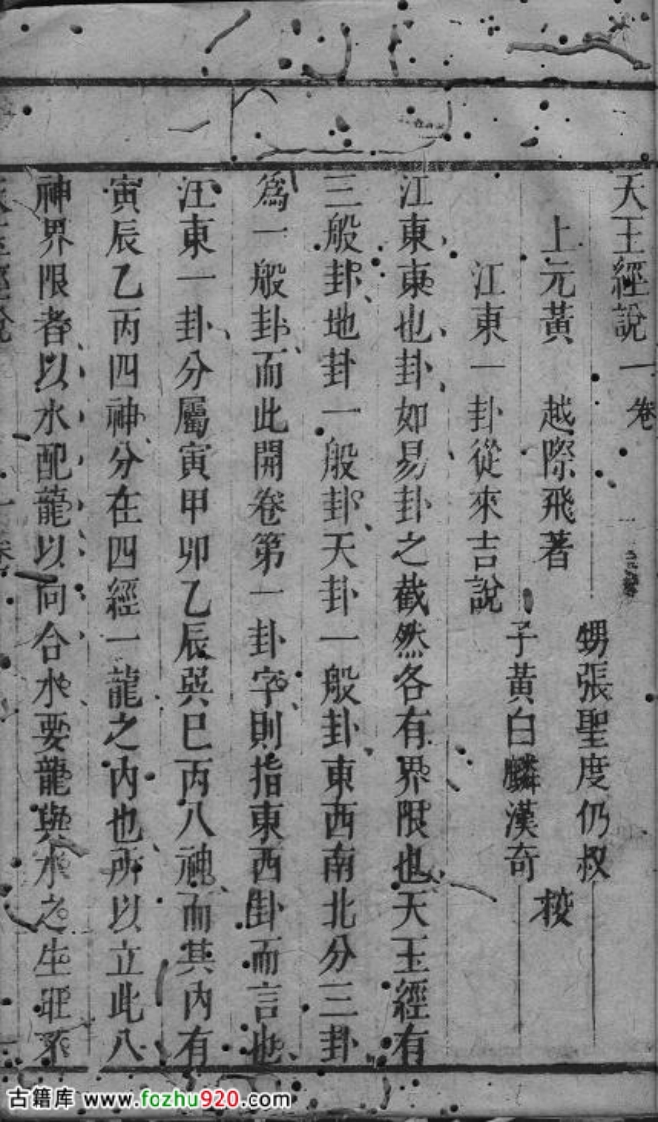 天玉經說 一卷
上元黃 越際飛著
甥張聖度仍叔
子黃白麟漢奇
校
江東一卦從來吉說
江東東也卦如易卦之截然各有界限也天玉經有
三般卦地卦一般卦天卦一般卦東西南北分三卦
為一般卦而此開卷第一卦字則指東西卦而言也
江東一卦分屬寅甲卯乙辰巽巳丙八神而其內有
寅辰乙丙四神分在四經一龍之內也所以立此八
神界限者以水配龍以向合水要龍與水之生旺不
天玉經說 一卷
古籍库 www.fozhu920.com